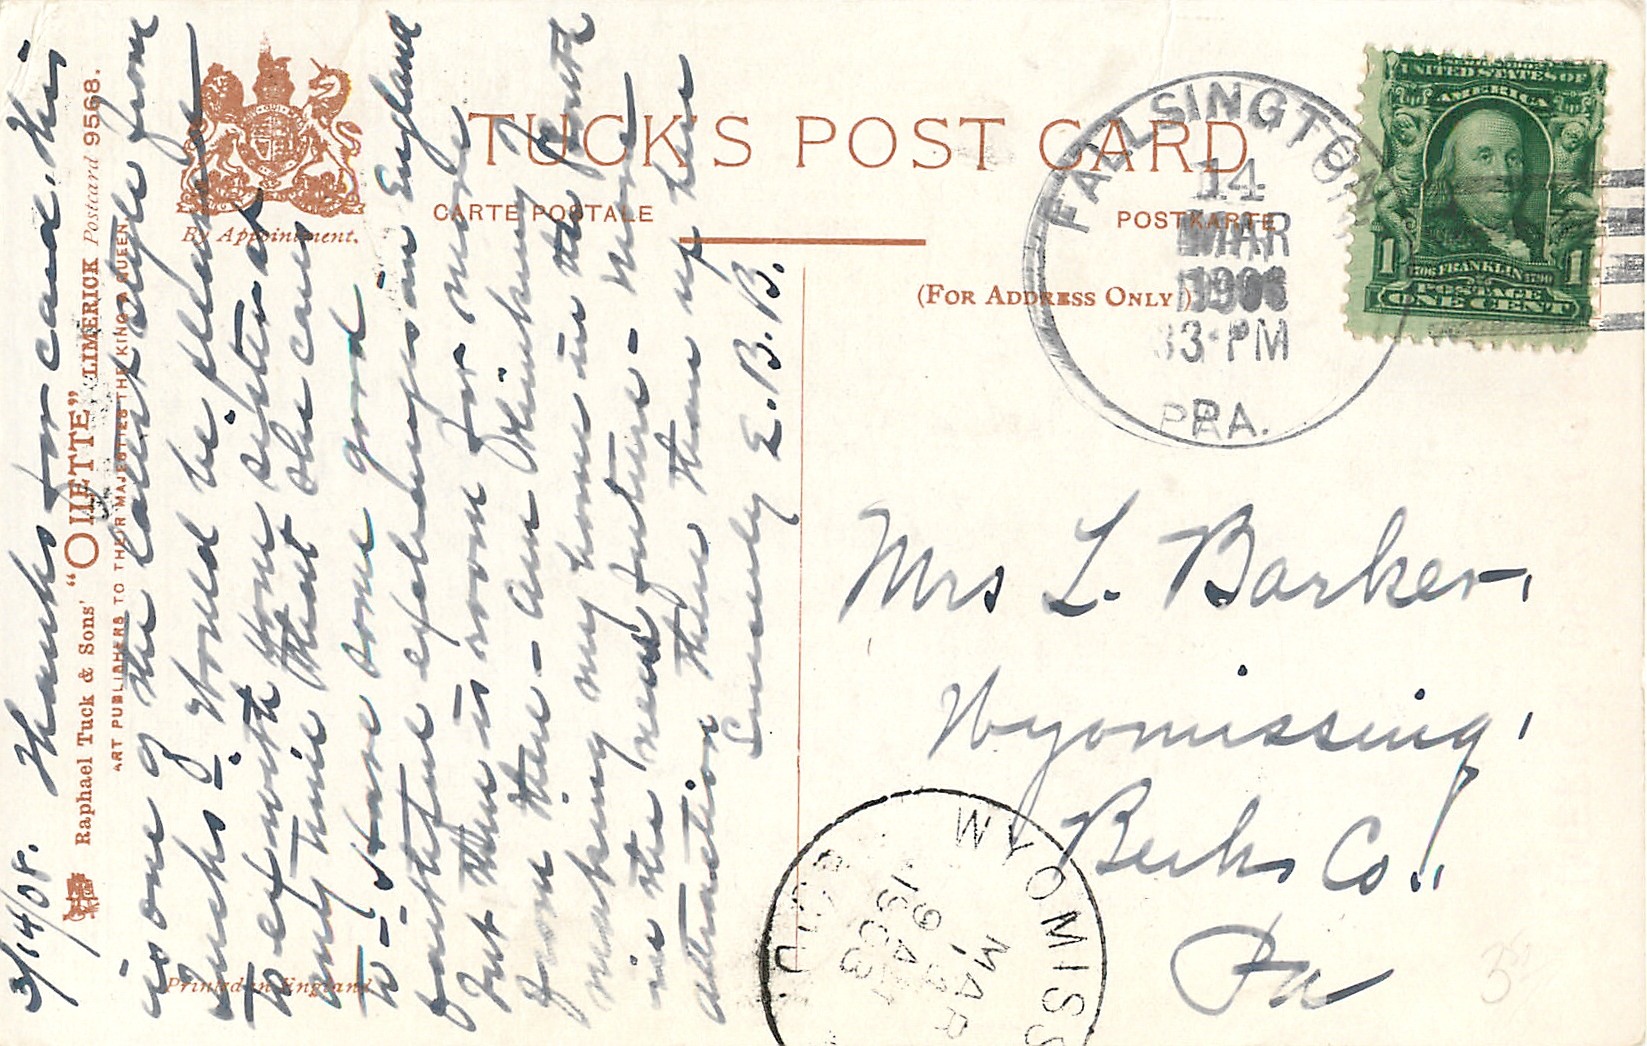 TUCK'S POST CARD
CARTE POSTALE
POSTKARTE
(FOR ADDRESS ONLY)
By Appointment.
Raphael Tuck & Sons' "OILETTE" LIMERICK Postcard 9568.
ART PUBLISHERS TO THEIR MAJESTIES THE KING & QUEEN
Printed in England
FALLSINGTON
14
MAR
3-PM
PA.
UNITED STATES OF
AMERICA
1 1706 FRANKLIN 1790 1
POSTAGE
ONE CENT
3/14/08. Thanks for card. This
is one of the latest style from
Tucks - I would be pleased
to ex. with you again at
any time that she cares
to - Have some good
faithful exchangers in England
but there is room for more
from there - Am thinking of
making my home in the South
in the near future - More
attraction there than up here
Sincerely E. B. B.
Mrs L. Barker,
Wyomissing,
Berks Co.,
Pa
WYOMISS
MAR